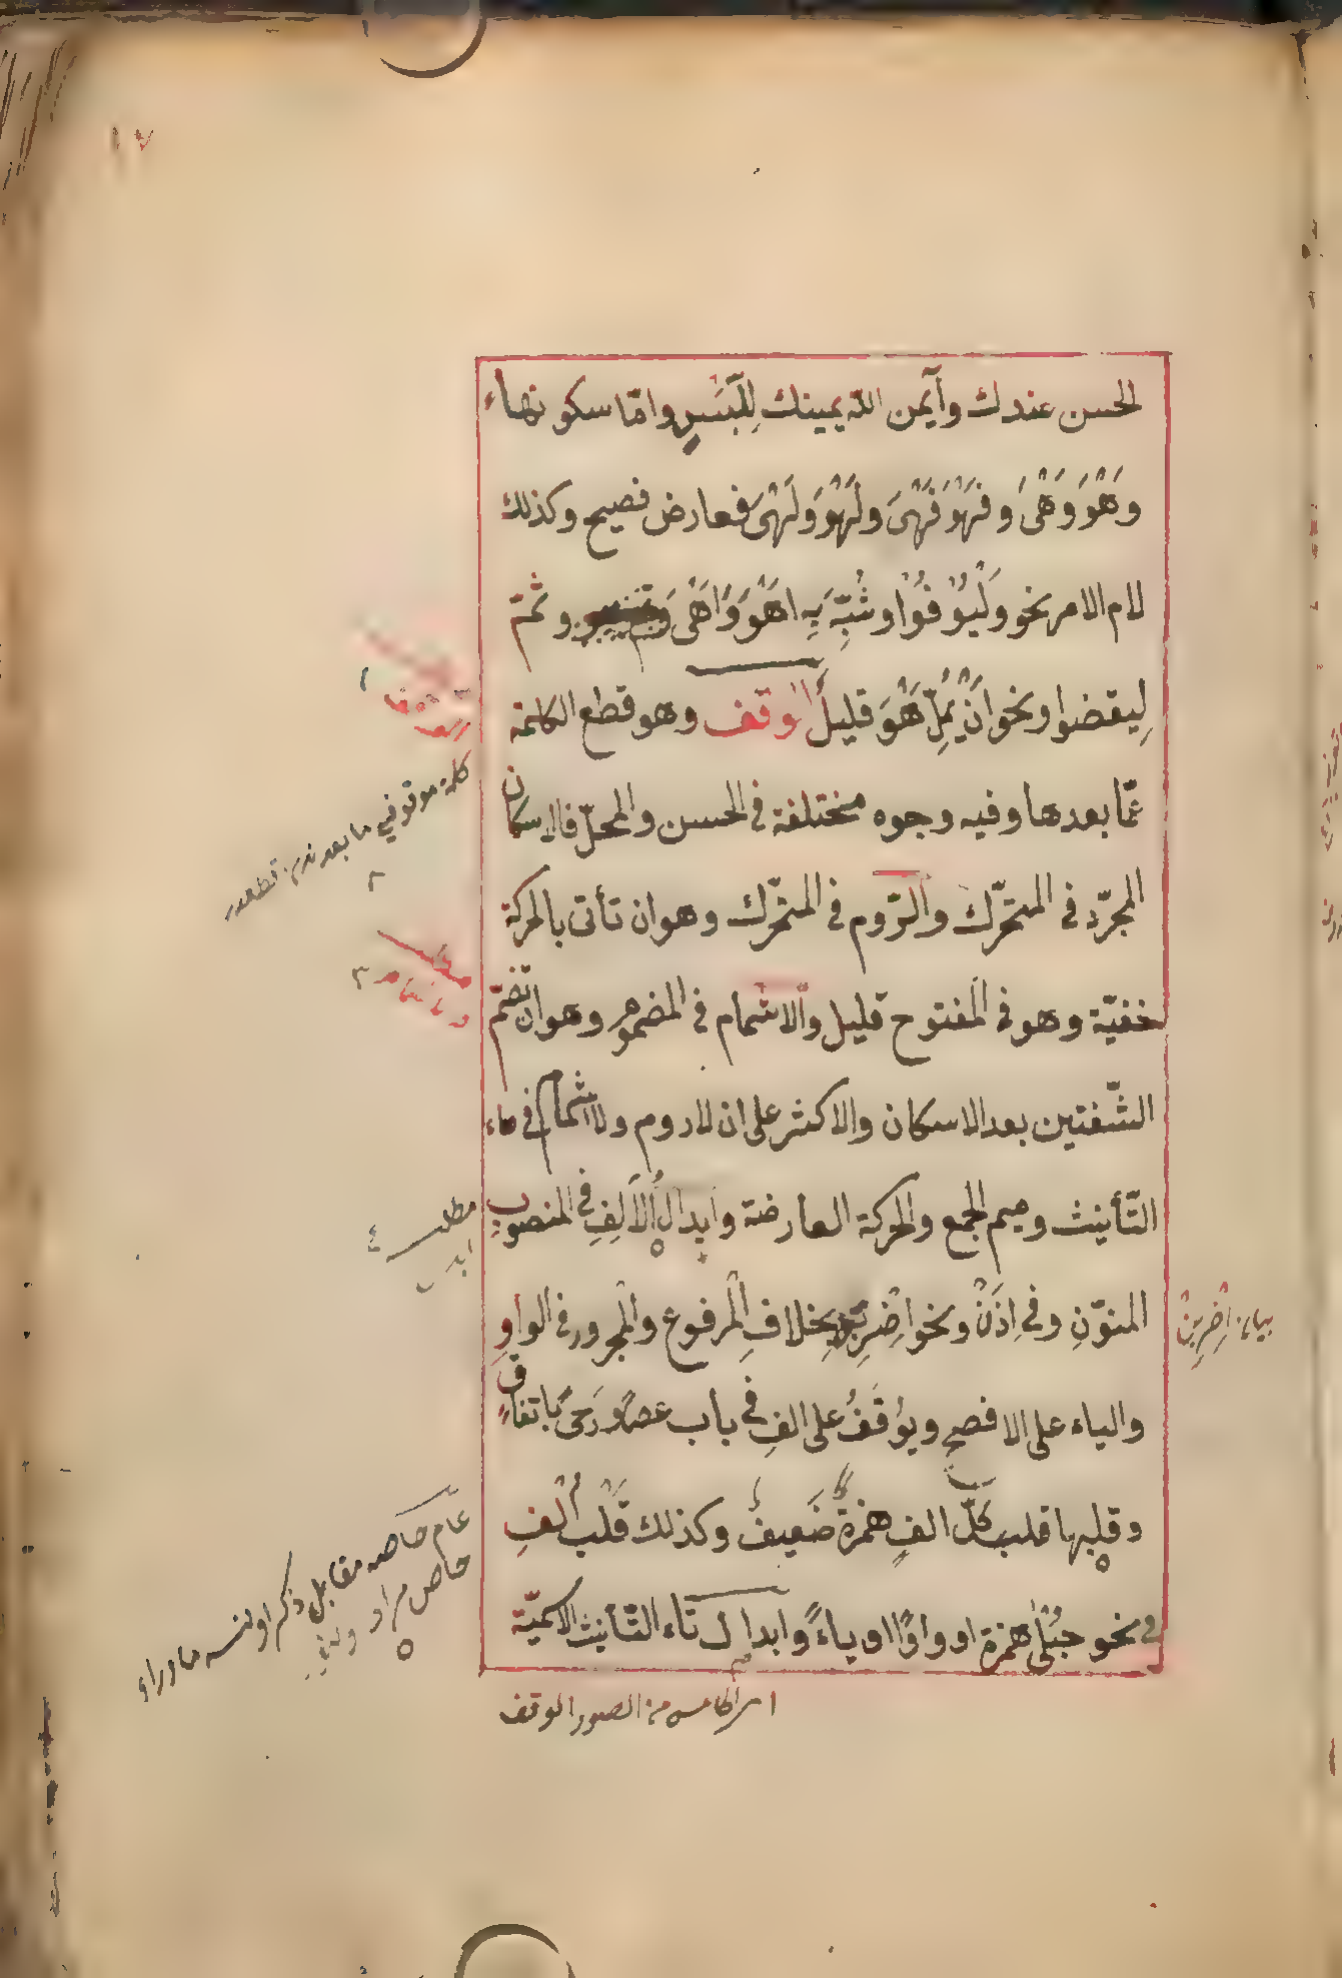 الحسن عندك وآيمن الله يمينك لِلَّبْسِ وامّا سكون هاء
وَهْوَ وَهْىَ وفَهْوَ فَهْىَ ولَهْوَ وَلَهْىَ فعارض فصيح وكذلك
لام الامر نحو وَلْيُوْفُوْا وشُبِّهَ بِهِ اهْوَ وَاَهْىَ وثمّ
لِيقضوا ونحو اَنْ يُمِلَّ هْوَ قليلٌ الوقف وهو قطع الكلمة
عمّا بعدها وفيه وجوه مختلفة فى الحسن والمحلّ فالاسكان
المجرّد فى المتحرّك والرّوم فى المتحرّك وهو ان تأتى بالحركة
خفيّة وهو فى المفتوح قليل والاشمام فى المضموم وهو ان تضمّ
الشّفتين بعد الاسكان والاكثر على ان لا روم ولا اشمام فى هاء
التّأنيث وميم الجمع والحركة العارضة وابدالُ الاَلِفِ فى المنصوبِ
المنوّنِ وفى اِذَنْ ونحو اِضْرِبَنْ بخلافِ المرفوع والمجرور فى الواوِ
والياء على الافصح ويُوْقَفُ على الفِ فى باب عصًا ورَحًى باتفاقٍ
وقلبها قلب كلّ الفٍ همزةً ضَعيفٌ وكذلك قَلْبُ اَلفِ
فى نحو حُبْلٰى همزة او واوًا او ياءً وابدال تاء التّأنيث الاسميّة
بيان اِضْرِبَنْ
مطلب
ابد
عام خاصه مقابل ذكر اولنسه ماوراء
خاص مراد
امر الخامس من الصور الوقف